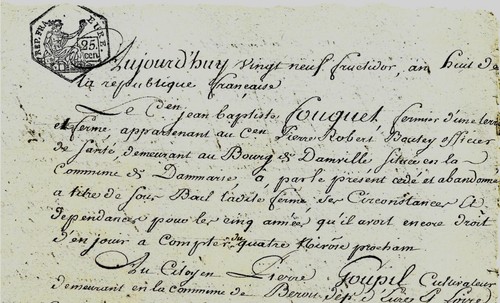 REP. FRA. EURE.
25. cen
Aujourd'huy vingt neuf fructidor, an huit de
la république française
Le C.en jean baptiste fouquet fermier d'une terre
et ferme, appartenant au Cen Pierre Robert Boutey officier
de Santé, demeurant au Bourg de Damville située en la
Commune de Dammarie a par le présent cédé et abandonné
a titre de sous Bail ladite ferme Ses Circonstances &
dependances pour les cinq années qu'il avoit encore droit
d'en jouir a compter du quatre Nivose prochain
Au Citoyen Pierre Goupil Cultivateur
demeurant en la commune de Berou dép. d'Eure & Loire